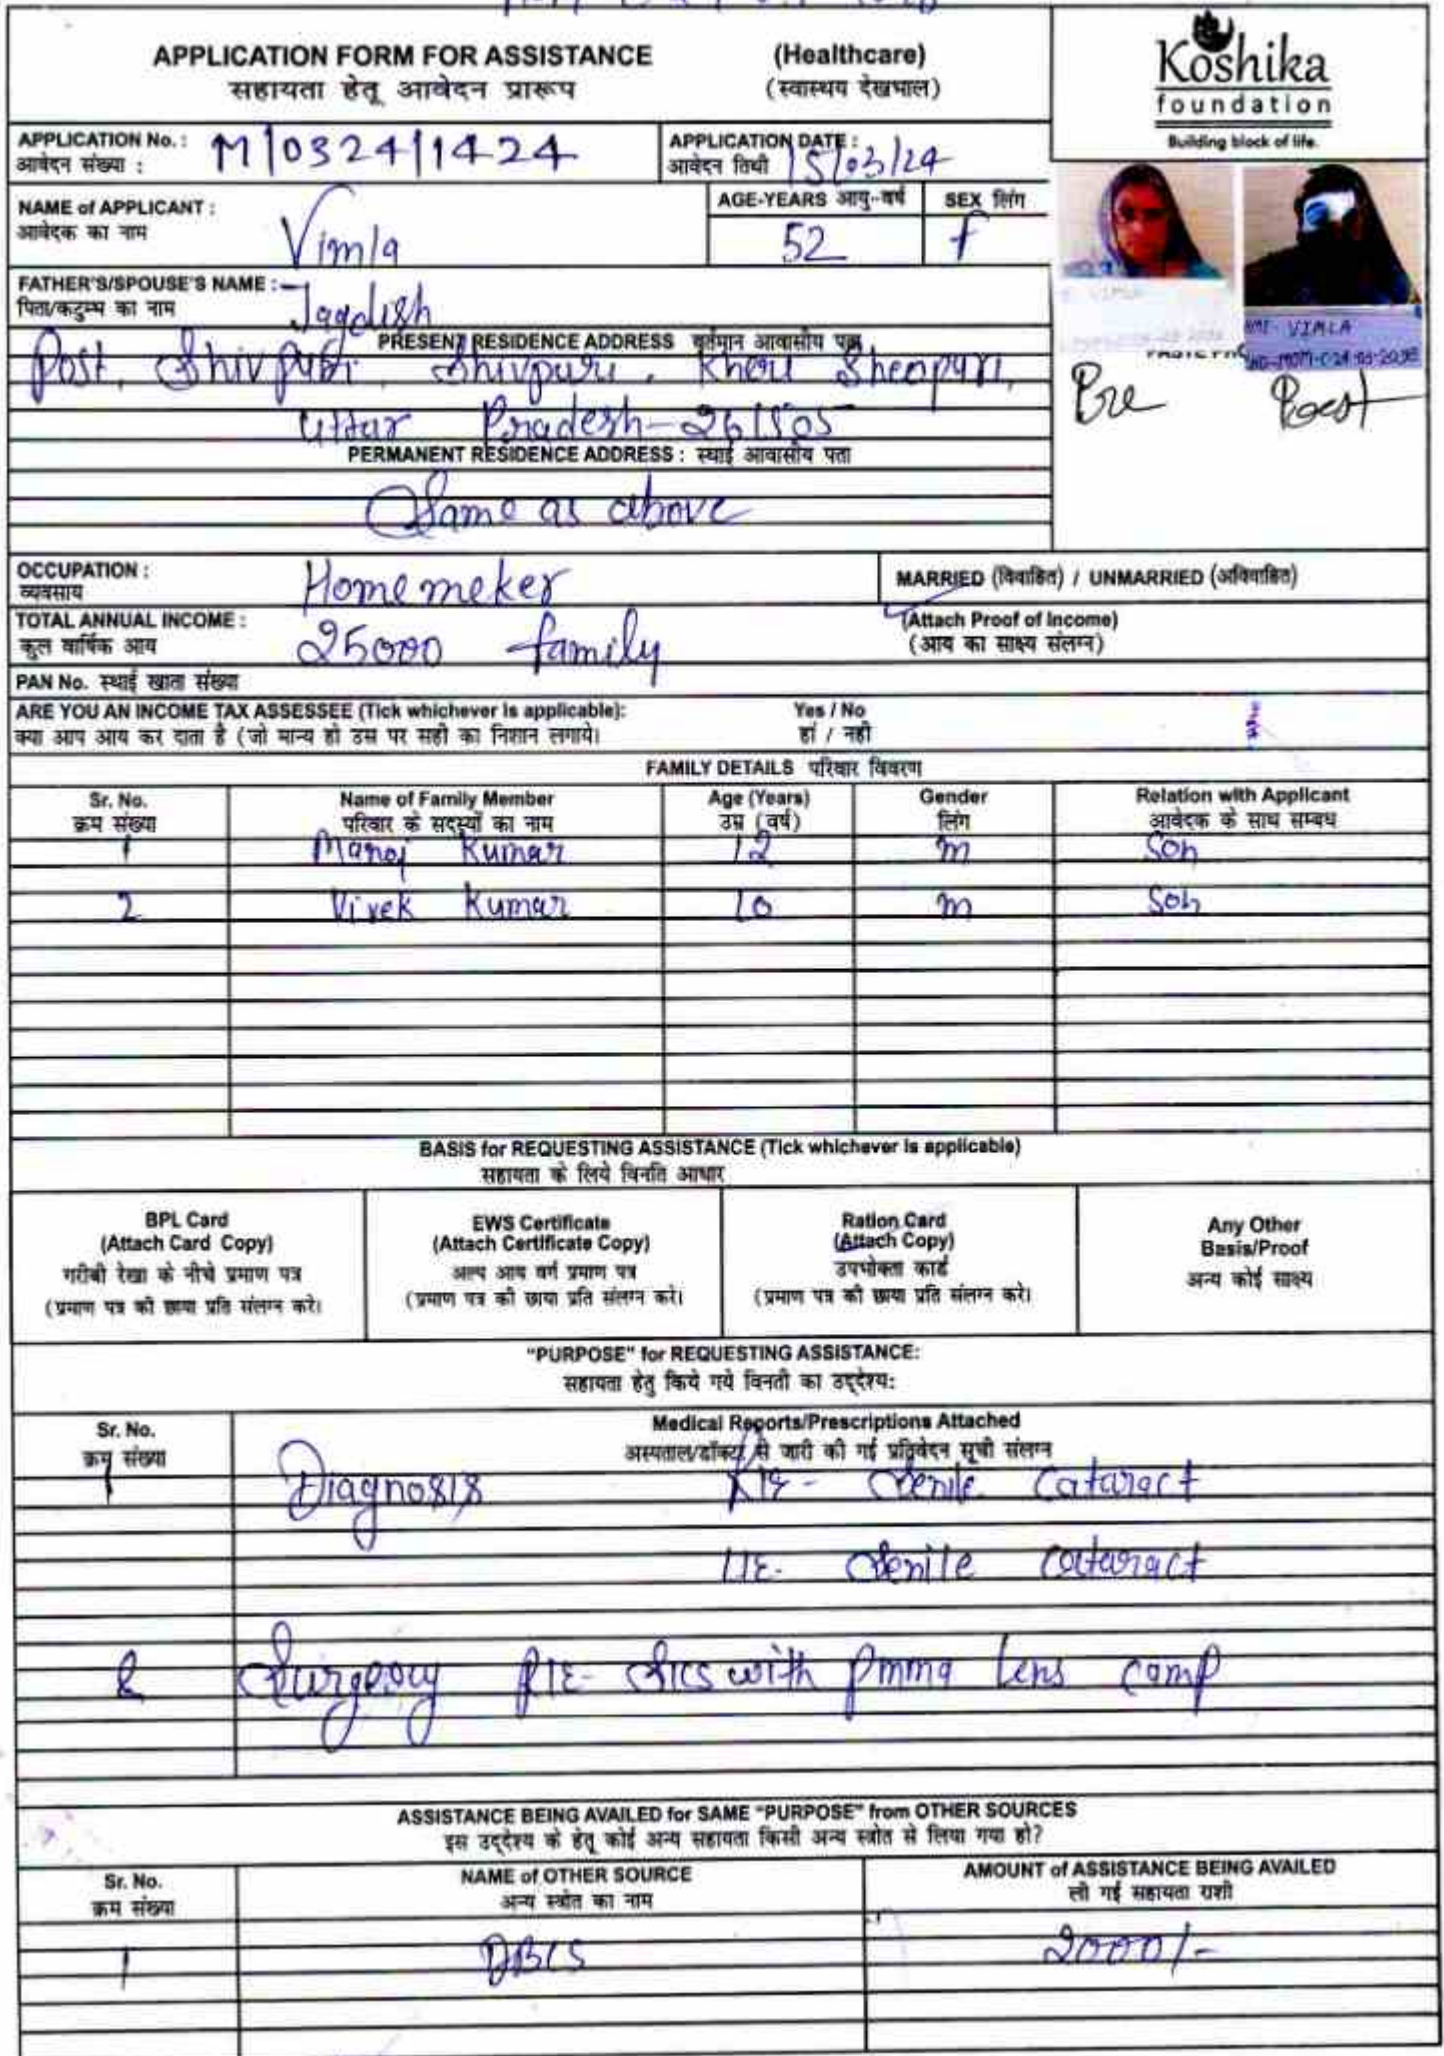 APPLICATION FORM FOR ASSISTANCE (Healthcare)
सहायता हेतू आवेदन प्रारूप (स्वास्थय देखभाल)
Koshika
foundation
Building block of life.
APPLICATION No. : M/0324/1424
आवेदन संख्या :
APPLICATION DATE : 15/03/24
आवेदन तिथी
NAME of APPLICANT : Vimla
आवेदक का नाम
AGE-YEARS आयु-वर्ष 52
SEX लिंग f
FATHER'S/SPOUSE'S NAME : Jagdish
पिता/कटुम्ब का नाम
VIMLA
Pre Post
PRESENT RESIDENCE ADDRESS वर्तमान आवासीय पता
Post, Shivpuri, Shivpuri, Kheri
Uttar Pradesh-261505
PERMANENT RESIDENCE ADDRESS : स्थाई आवासीय पता
Same as above
OCCUPATION : Homemeker
व्यवसाय
MARRIED (विवाहित) / UNMARRIED (अविवाहित)
TOTAL ANNUAL INCOME : 25000 family
कुल वार्षिक आय
(Attach Proof of Income)
(आय का साक्ष्य संलग्न)
PAN No. स्थाई खाता संख्या
ARE YOU AN INCOME TAX ASSESSEE (Tick whichever is applicable): Yes / No
क्या आप आय कर दाता है (जो मान्य हो उस पर सही का निशान लगाये। हां / नही
FAMILY DETAILS परिवार विवरण
Sr. No. Name of Family Member Age (Years) Gender Relation with Applicant
क्रम संख्या परिवार के सदस्यों का नाम उम्र (वर्ष) लिंग आवेदक के साथ सम्बध
1 Manoj Kumar 12 m Son
2 Vivek Kumar 10 m Son
BASIS for REQUESTING ASSISTANCE (Tick whichever is applicable)
सहायता के लिये विनति आधार
BPL Card
(Attach Card Copy)
गरीबी रेखा के नीचे प्रमाण पत्र
(प्रमाण पत्र की छाया प्रति संलग्न करे।
EWS Certificate
(Attach Certificate Copy)
अल्प आय वर्ग प्रमाण पत्र
(प्रमाण पत्र की छाया प्रति संलग्न करे।
Ration Card
(Attach Copy)
उपभोक्ता कार्ड
(प्रमाण पत्र की छाया प्रति संलग्न करे।
Any Other
Basis/Proof
अन्य कोई साक्ष्य
"PURPOSE" for REQUESTING ASSISTANCE:
सहायता हेतु किये गये विनती का उद्देश्य:
Sr. No. Medical Reports/Prescriptions Attached
क्रम संख्या अस्पताल/डॉक्टर से जारी की गई प्रतिवेदन सूची संलग्न
1 Diagnosis R/E- Senile Cataract
L/E- Senile Cataract
2 Surgery R/E- SICS with pmma Lens camp
ASSISTANCE BEING AVAILED for SAME "PURPOSE" from OTHER SOURCES
इस उद्देश्य के हेतू कोई अन्य सहायता किसी अन्य स्त्रोत से लिया गया हो?
Sr. No. NAME of OTHER SOURCE AMOUNT of ASSISTANCE BEING AVAILED
क्रम संख्या अन्य स्त्रोत का नाम ली गई सहायता राशी
1 DBCS 2000/-